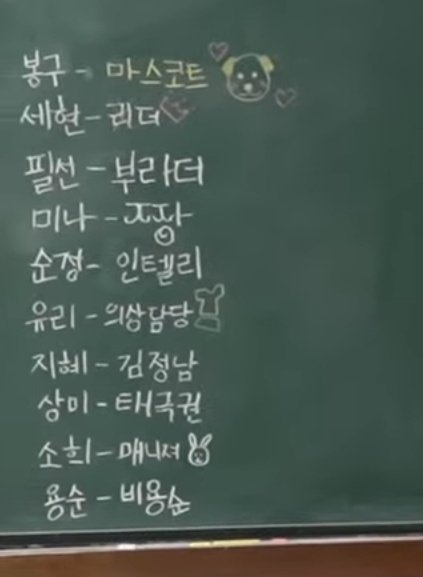 봉구 - 마스코트
세현 - 리더
필선 - 부라더
미나 - 짱
순정 - 인텔리
유리 - 의상담당
지혜 - 김정남
상미 - 태극권
소희 - 매니져
용순 - 비용순